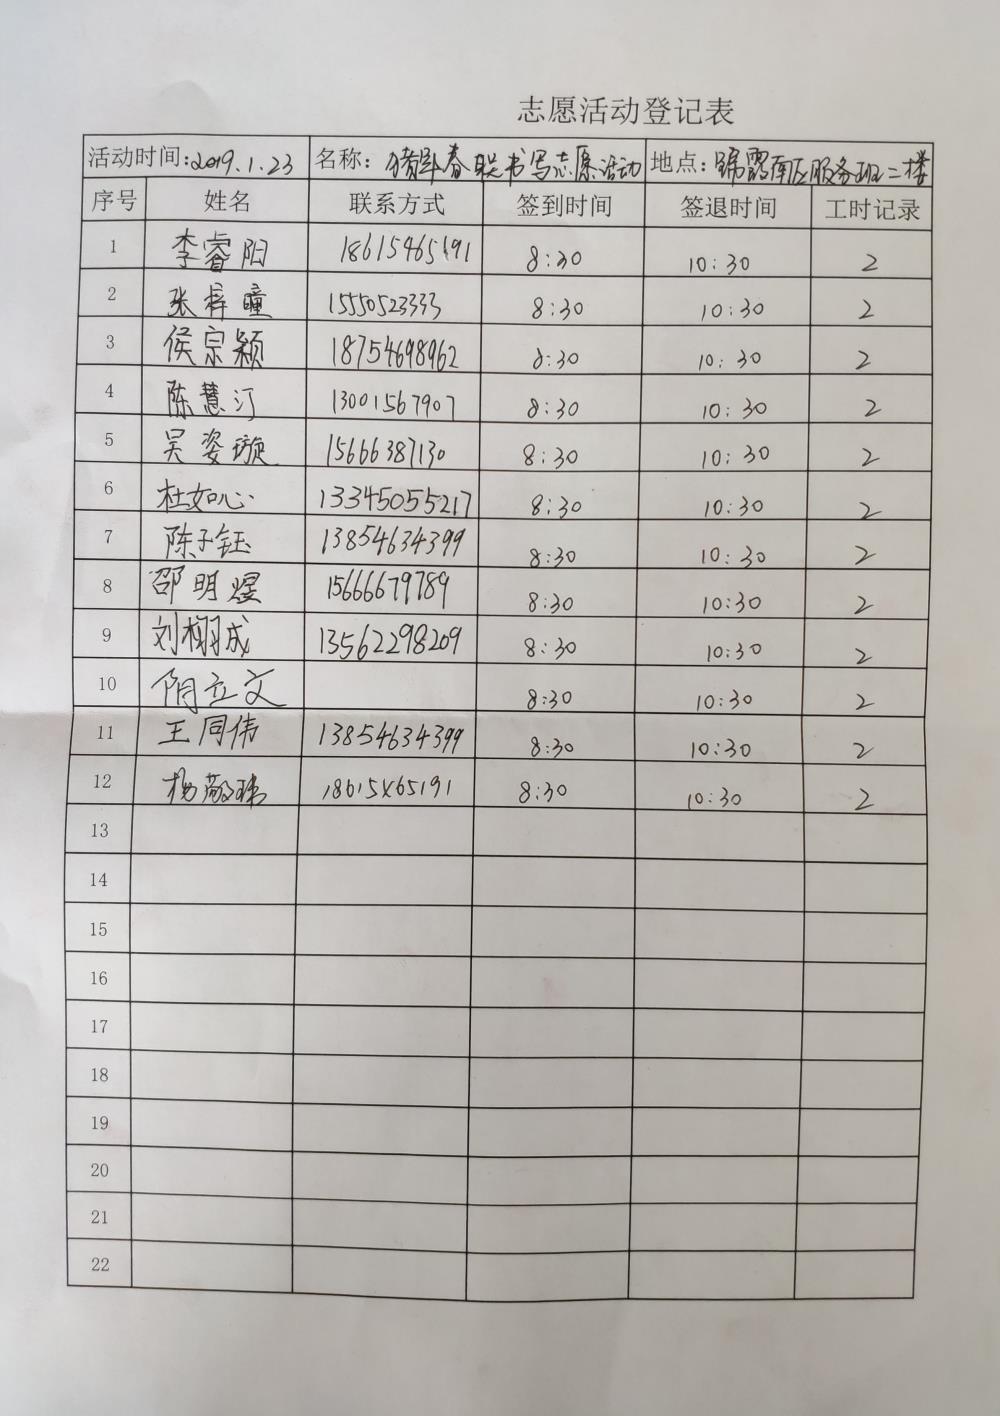 志愿活动登记表
活动时间:2019.1.23 名称: 猪年春联书写志愿活动 地点: 锦霞南区服务班二楼
序号 姓名 联系方式 签到时间 签退时间 工时记录
1 李睿阳 18615465191 8:30 10:30 2
2 张梓曈 15550523333 8:30 10:30 2
3 侯宗颖 18754698962 8:30 10:30 2
4 陈慧汀 13001567907 8:30 10:30 2
5 吴姿璇 15666387130 8:30 10:30 2
6 杜如心 13345055217 8:30 10:30 2
7 陈子钰 13854634399 8:30 10:30 2
8 邵明煜 15666679789 8:30 10:30 2
9 刘栩成 13562298209 8:30 10:30 2
10 阴立文 8:30 10:30 2
11 王同伟 13854634399 8:30 10:30 2
12 杨敬琇 18615465191 8:30 10:30 2
13
14
15
16
17
18
19
20
21
22